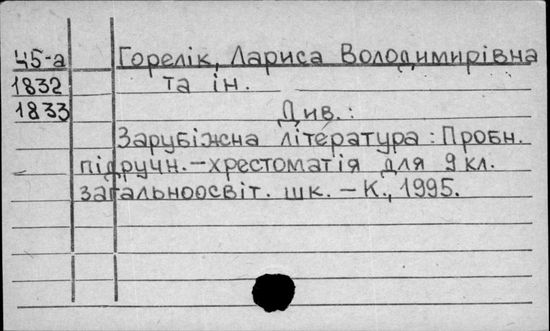 Ч5-а Горелік, Лариса Володимирівна
1832 та ін.
1833 Див.:
Зарубіжна література: Пробн.
підручн.-хрестоматія для 9 кл.
загальноосвіт. шк. – К., 1995.